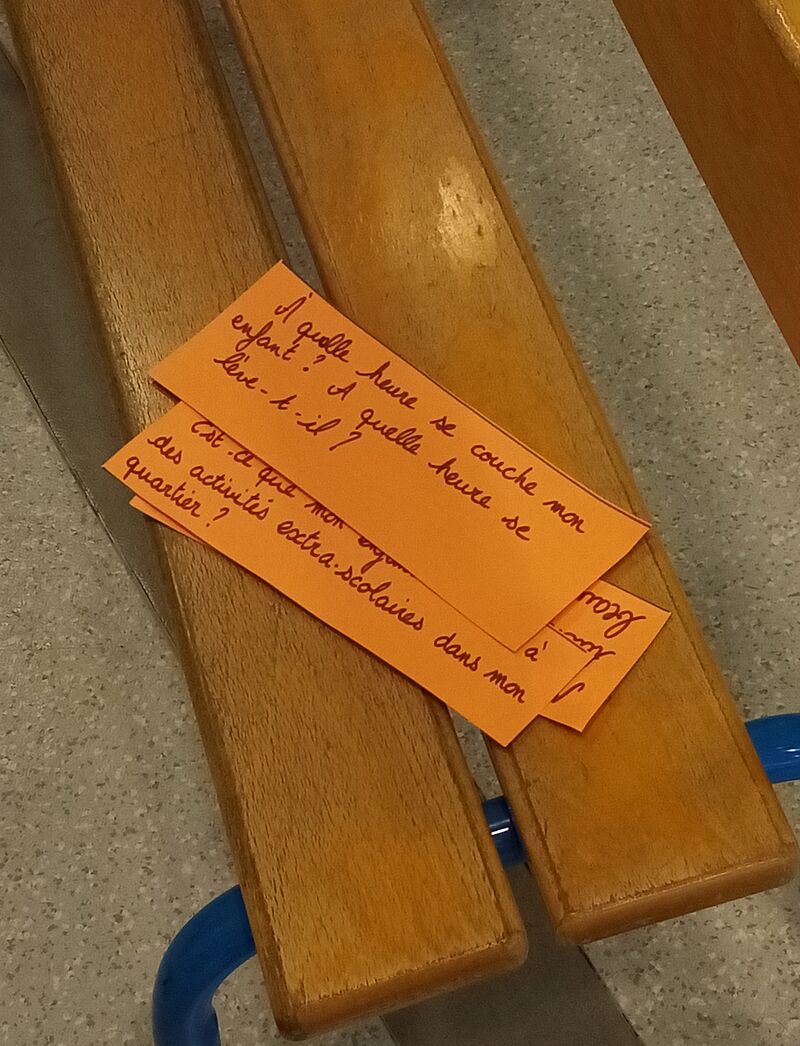 À quelle heure se couche mon
enfant ? A quelle heure se
lève-t-il ?
Est-ce que mon à
des activités extra-scolaires dans mon
quartier ?